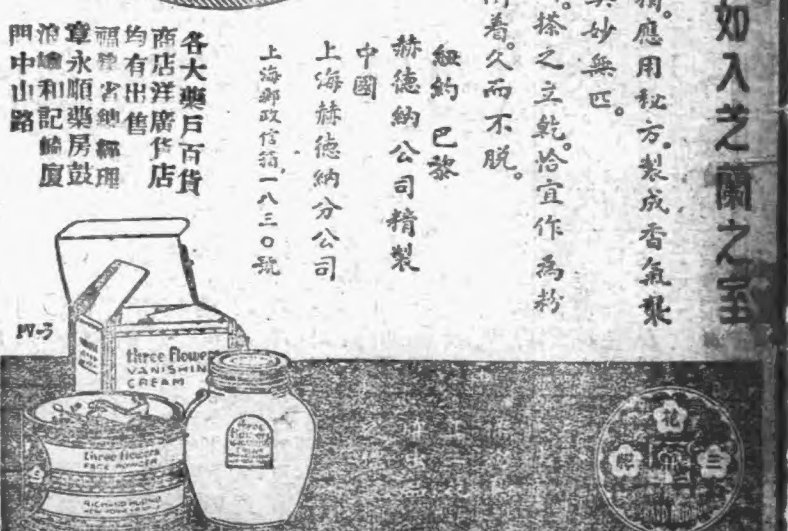 如入芝蘭之室
應用秘方。製成香氣襲
妙無匹。
搽之立乾。恰宜作為粉
着。久而不脫。
紐約 巴黎
赫德納公司精製
中國
上海赫德納分公司
上海郵政信箱一八三〇號
各大藥戶百貨
商店洋廣貨店
均有出售
省總經理
章永順藥房鼓
浪嶼和記崎廈
門中山路
PV-3
three flowers
VANISHIN
CREAM
three flowers
FACE POWDER
RICHARD HUDNUT
three
flowers
三
花
牌